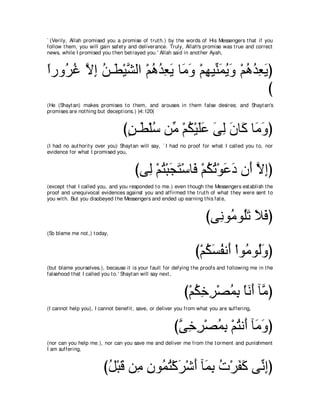 ` (Verily, Allah promised you a promise of truth.) by the words of His Messengers that if you
follow them, you will gain safety and deliverance. Truly, Allah's promise was true and correct
news, while I promised you then betrayed you.' Allah said in another Ayah,
(يَعِدُهُمْ وَيُمَنِّيهِمْ وَمَا يَعِدُهُمْ الشَّيْطَـنُ إِلاَّ غُرُوراً
)
(He (Shaytan) makes promises to them, and arouses in them false desires; and Shaytan's
promises are nothing but deceptions.) (4:120(
(وَمَا كَانَ لِىَ عَلَيْكُمْ مِّن سُلْطَـنٍ)
(I had no authority over you) Shaytan will say, ` I had no proof for what I called you to, nor
evidence for what I promised you,
(إِلاَّ أَن دَعَوْتُكُمْ فَاسْتَجَبْتُمْ لِى)
(except that I called you, and you responded to me.) even though the Messengers establish the
proof and unequivocal evidences against you and affirmed the truth of what they were sent to
you with. But you disobeyed the Messengers and ended up earning this fate,
(فَلاَ تَلُومُونِى)
(So blame me not,) today,
(وَلُومُواْ أَنفُسَكُمْ)
(but blame yourselves.), because it is your fault for defying the proofs and following me in the
falsehood that I called you to.' Shaytan will say next,
(مَّآ أَنَاْ بِمُصْرِخِكُمْ)
(I cannot help you), I cannot benefit, save, or deliver you from what you are suffering,
(وَمَآ أَنتُمْ بِمُصْرِخِىَّ)
(nor can you help me.), nor can you save me and deliver me from the torment and punishment
I am suffering,
(إِنِّى كَفَرْتُ بِمَآ أَشْرَكْتُمُونِ مِن قَبْلُ)